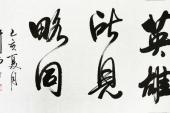 英雄
所見
略同
乙亥夏月